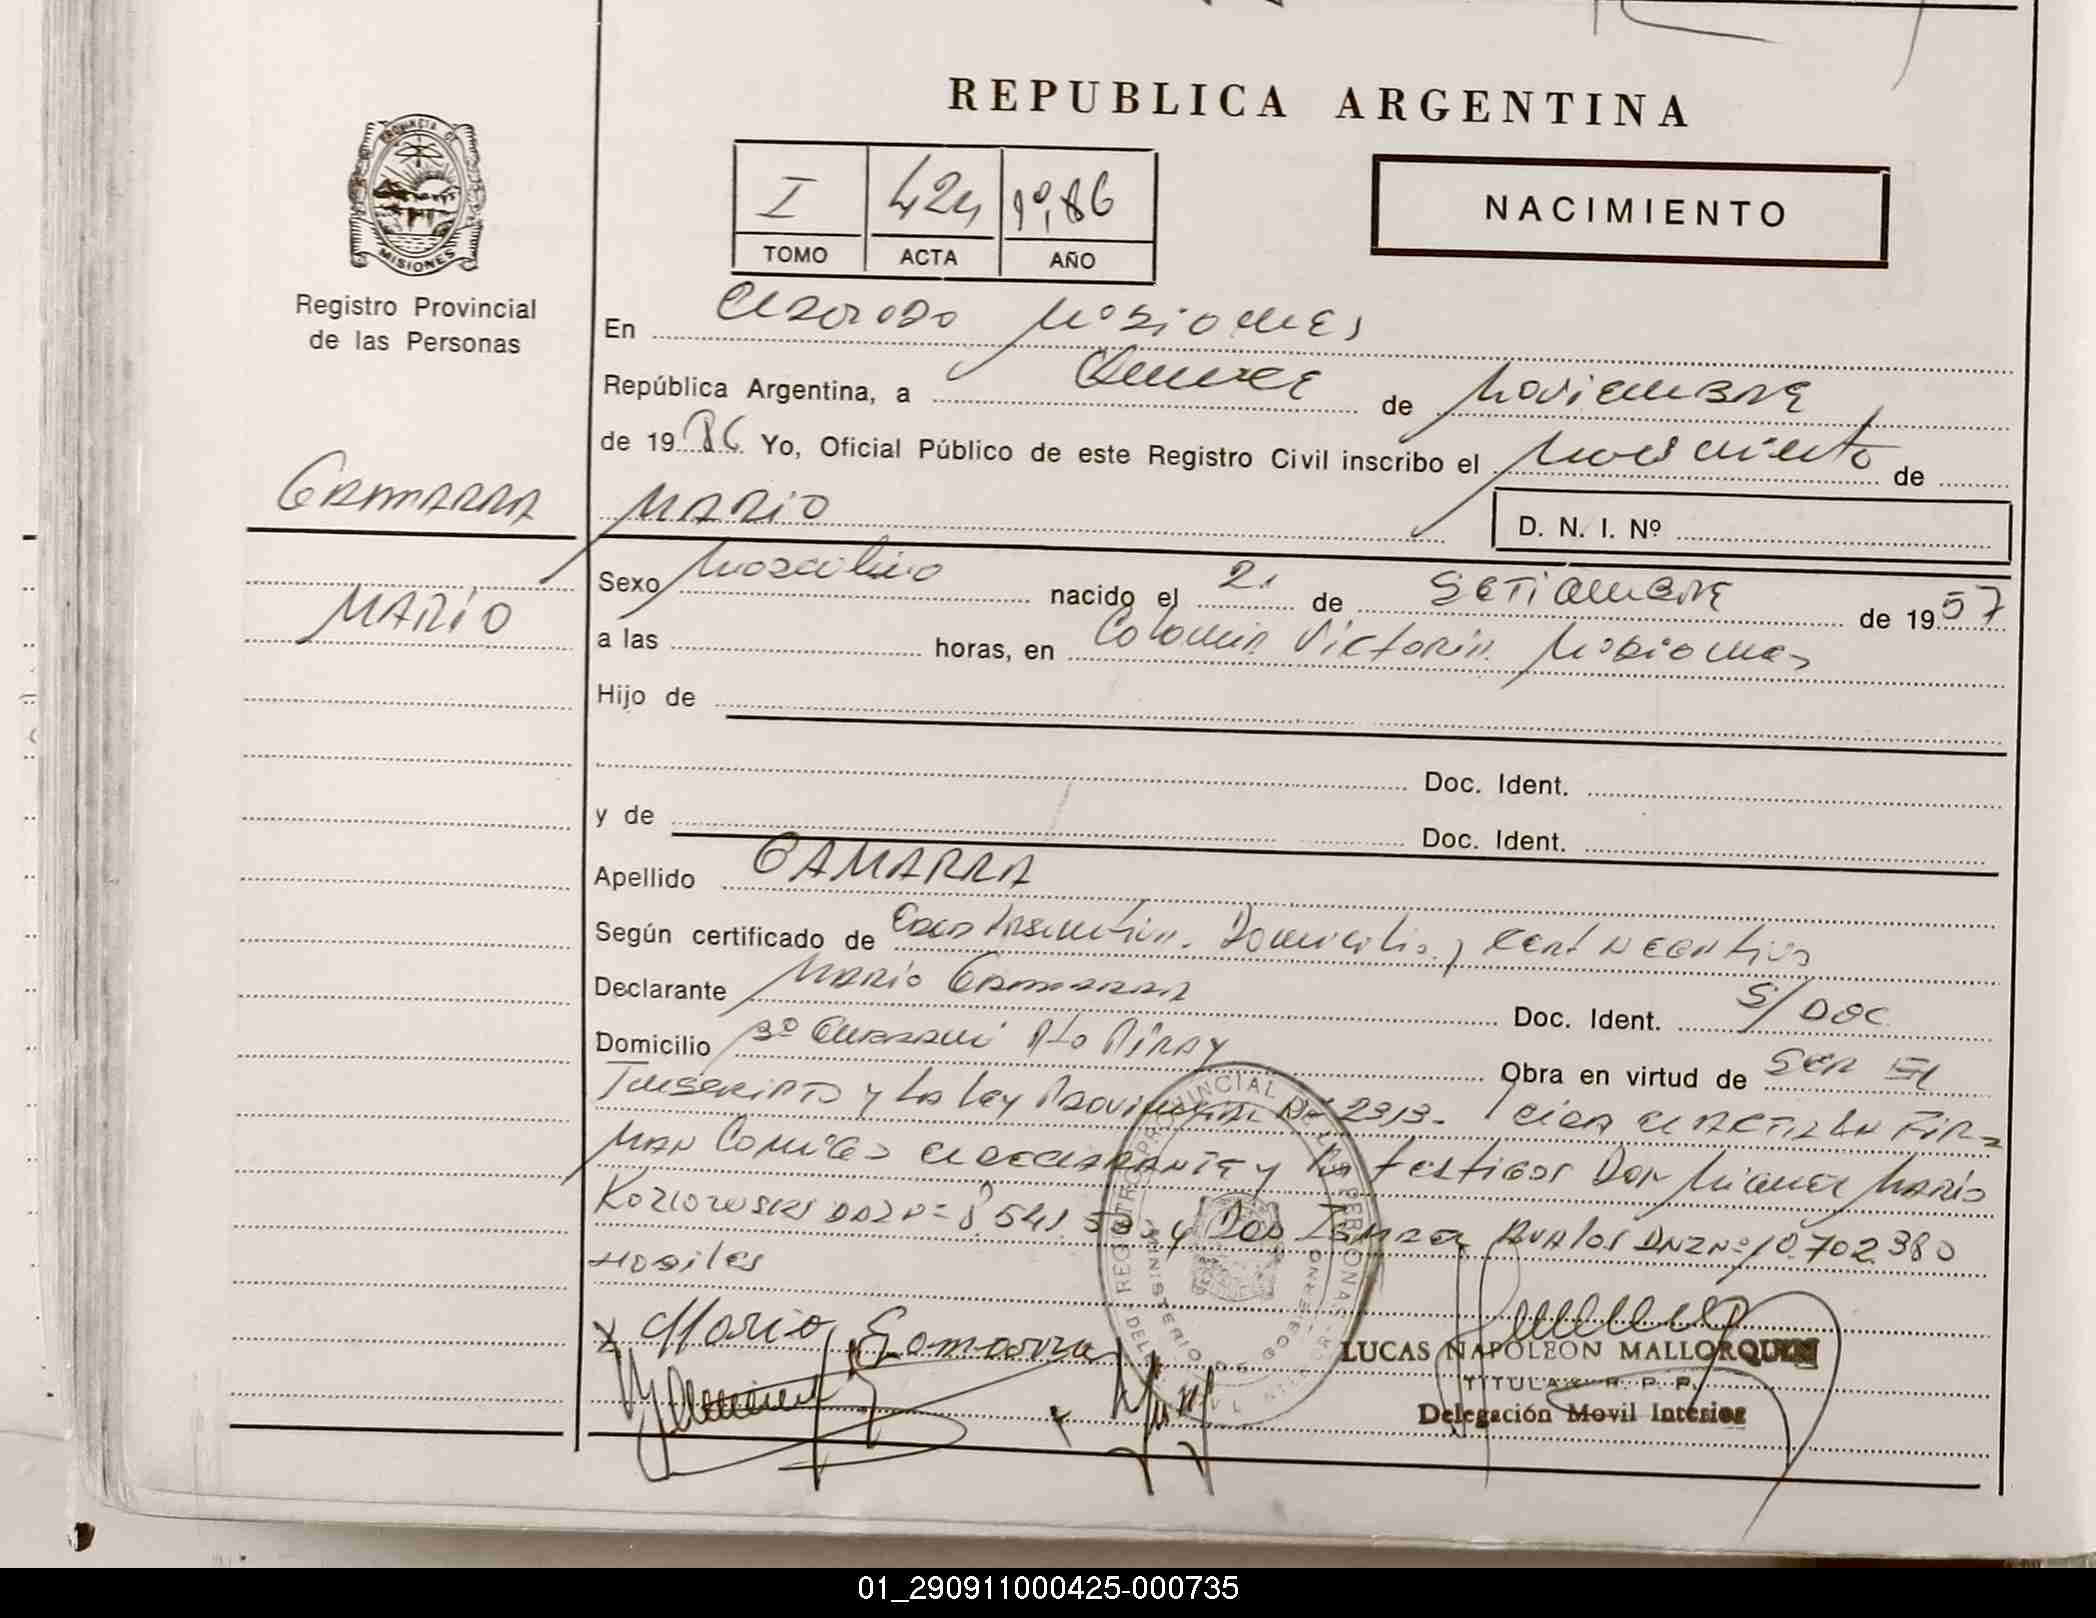 REPUBLICA ARGENTINA
PROVINCIA DE
MISIONES
Registro Provincial
de las Personas
I 424 1986
TOMO ACTA AÑO
NACIMIENTO
En Eldorado Misiones
República Argentina, a Quince de Noviembre
de 1986 Yo, Oficial Público de este Registro Civil inscribo el Nacimiento de
GAMARRA
MARIO
D. N. I. Nº
MARIO
Sexo Masculino nacido el 21 de SETIEMBRE de 1957
a las horas, en Colonia Victoria Misiones
Hijo de
Doc. Ident.
y de Doc. Ident.
Apellido GAMARRA
Según certificado de Domicilio y CERT NEGATIVO
Declarante MARIO GAMARRA Doc. Ident. S/DOC
Domicilio Bº Pto PIRAY Obra en virtud de SER EL
INSCRIPTO y La Ley PROVINCIAL Nº 2313. Leida el ACTA LA FIR=
MAN CONMIGO el DECLARANTE y los testigos DON Miguel MARIO
8541 y AVALOS DNI Nº 10.702.380
HABILES
REGISTRO PROVINCIAL DE LAS PERSONAS
MINISTERIO DE GOBIERNO
x Mario Gamarra
LUCAS NAPOLEON MALLORQUIN
TITULAR R. P. P.
Delegación Movil Interior
01_290911000425-000735